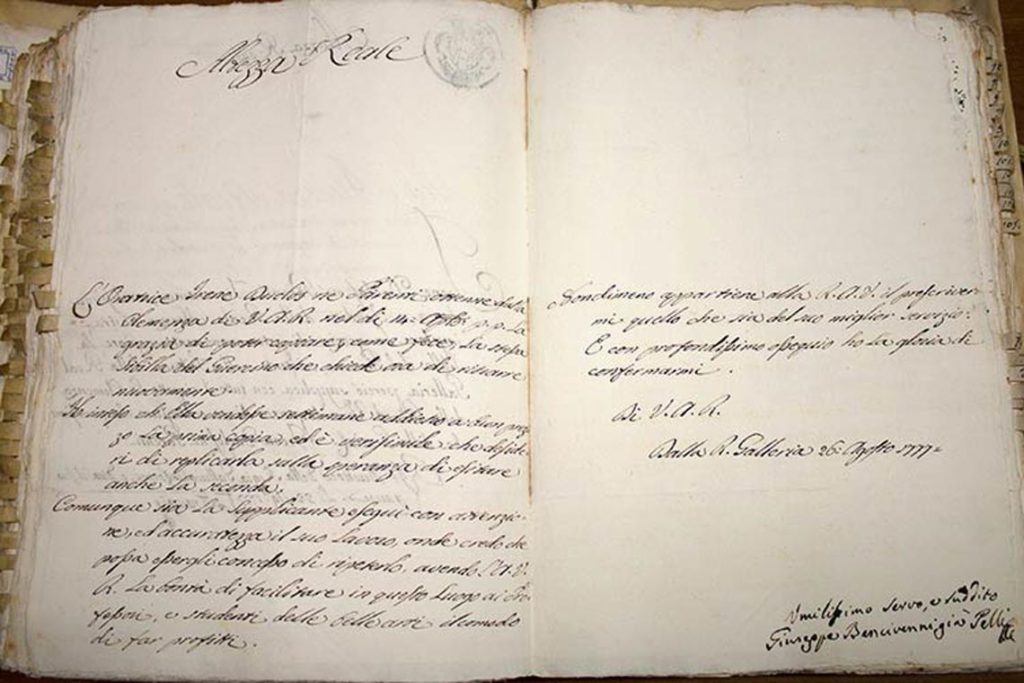 Altezza Reale
L'Oratrice Irene Duclos ne Parenti ottenne dalla
Clemenza di V. A. R. nel dì 14. p. p. la
grazia di poter copiare, come fece, la stessa
Sibilla del Guercino che chiede ora di ritrarre
nuovamente
Ho inteso che Ella vendesse settimane addietro a buon prez-
zo la prima copia, ed è verisimile che deside-
ri di replicarla sulla speranza di esitare
anche la seconda.
Comunque sia la supplicante eseguì con attenzio-
ne, ed accuratezza il suo lavoro, onde credo che
possa essergli concesso di ripeterlo, avendo l'A. V.
R. la bontà di facilitare in questo Luogo ai Pro-
fessori, e studenti delle belle arti il comodo
di far profitti.
Nondimeno appartiene alla R. A. V. il prescriver-
mi quello che sia del suo miglior servizio:
E con profondissimo ossequio ho la gloria di
confermarmi.
Di V. A. R.
Dalla R. Galleria 26. Agosto 1777.
Umilissimo Servo, e Suddito
Giuseppe Bencivenni già Pelli